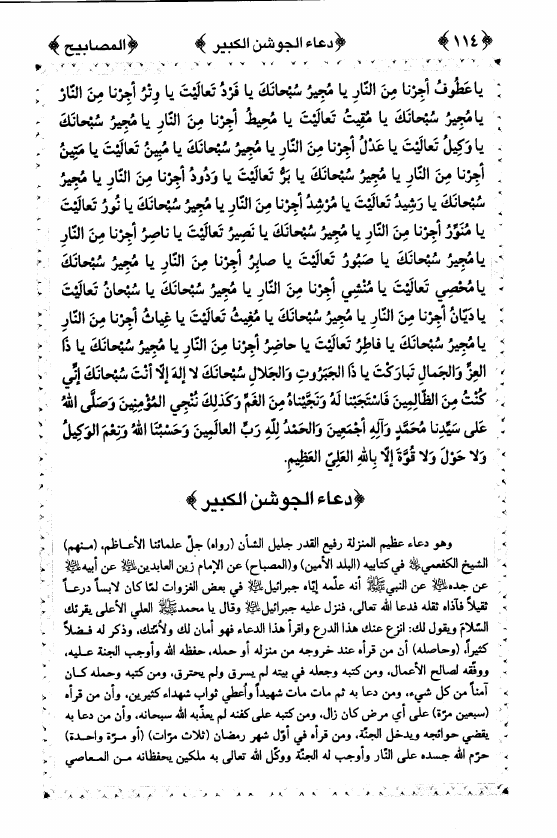 ﴿١١٤﴾ ﴿دعاء الجوشن الكبير﴾ ﴿المصابيح﴾
يا عَطُوفُ أجِرْنا مِنَ النّارِ يا مُجِيرُ سُبْحانَكَ يا فَرْدُ تَعالَيْتَ يا وِتْرُ أجِرْنا مِنَ النّارْ
يا مُجِيرُ سُبْحانَكَ يا مُقِيتُ تَعالَيْتَ يا مُحِيطُ أجِرْنا مِنَ النّارِ يا مُجِيرُ سُبْحانَكَ
يا وَكِيلُ تَعالَيْتَ يا عَدْلُ أجِرْنا مِنَ النّارِ يا مُجِيرُ سُبْحانَكَ يا مُبِينُ تَعالَيْتَ يا مَتِينُ
أجِرْنا مِنَ النّارِ يا مُجِيرُ سُبْحانَكَ يا بَرُّ تَعالَيْتَ يا وَدُودُ أجِرْنا مِنَ النّارِ يا مُجِيرُ
سُبْحانَكَ يا رَشِيدُ تَعالَيْتَ يا مُرْشِدُ أجِرْنا مِنَ النّارِ يا مُجِيرُ سُبْحانَكَ يا نُورُ تَعالَيْتَ
يا مُنَوِّرُ أجِرْنا مِنَ النّارِ يا مُجِيرُ سُبْحانَكَ يا نَصِيرُ تَعالَيْتَ يا ناصِرُ أجِرْنا مِنَ النّارِ
يا مُجِيرُ سُبْحانَكَ يا صَبُورُ تَعالَيْتَ يا صابِرُ أجِرْنا مِنَ النّارِ يا مُجِيرُ سُبْحانَكَ
يا مُحْصِي تَعالَيْتَ يا مُنْشِي أجِرْنا مِنَ النّارِ يا مُجِيرُ سُبْحانَكَ يا سُبْحانُ تَعالَيْتَ
يا دَيّانُ أجِرْنا مِنَ النّارِ يا مُجِيرُ سُبْحانَكَ يا مُغِيثُ تَعالَيْتَ يا غِياثُ أجِرْنا مِنَ النّارِ
يا مُجِيرُ سُبْحانَكَ يا فاطِرُ تَعالَيْتَ يا حاضِرُ أجِرْنا مِنَ النّارِ يا مُجِيرُ سُبْحانَكَ يا ذَا
العِزِّ وَالجَمالِ تَبارَكْتَ يا ذَا الجَبَرُوتِ وَالجَلالِ سُبْحانَكَ لا إلهَ إلّا أنْتَ سُبْحانَكَ إنِّي
كُنْتُ مِنَ الظّالِمِينَ فَاسْتَجَبْنا لَهُ وَنَجَّيْناهُ مِنَ الغَمِّ وَكَذلِكَ نُنْجِي المُؤْمِنِينَ وَصَلَّى اللهُ
عَلى سَيِّدِنا مُحَمَّدٍ وَآلِهِ أجْمَعِينَ وَالحَمْدُ لِلّهِ رَبِّ العالَمِينَ وَحَسْبُنَا اللهُ وَنِعْمَ الوَكِيلُ
وَلا حَوْلَ وَلا قُوَّةَ إلّا بِاللهِ العَلِيِّ العَظِيمِ.
﴿دعاء الجوشن الكبير﴾
وهو دعاء عظيم المنزلة رفيع القدر جليل الشأن (رواه) جلّ علمائنا الأعاظم، (منهم)
الشيخ الكفعمي في كتابيه (البلد الأمين) و(المصباح) عن الإمام زين العابدين عن أبيه
عن جده عن النبي ﷺ أنه علّمه إيّاه جبرائيل في بعض الغزوات لمّا كان لابساً درعاً
ثقيلاً فآذاه ثقله فدعا الله تعالى، فنزل عليه جبرائيل وقال يا محمد ﷺ العلي الأعلى يقرئك
السّلام ويقول لك: انزع عنك هذا الدرع واقرأ هذا الدعاء فهو أمان لك ولأمّتك، وذكر له فضلاً
كثيراً، (وحاصله) أن من قرأه عند خروجه من منزله أو حمله، حفظه الله وأوجب الجنة عليه،
ووفّقه لصالح الأعمال، ومن كتبه وجعله في بيته لم يسرق ولم يحترق، ومن كتبه وحمله كان
آمناً من كل شيء، ومن دعا به ثم مات مات شهيداً وأعطي ثواب شهداء كثيرين، وأن من قرأه
(سبعين مرّة) على أي مرض كان زال، ومن كتبه على كفنه لم يعذّبه الله سبحانه، وأن من دعا به
يقضي حوائجه ويدخل الجنّة، ومن قرأه في أوّل شهر رمضان (ثلاث مرّات) (أو مرّة واحدة)
حرّم الله جسده على النّار وأوجب له الجنّة ووكّل الله تعالى به ملكين يحفظانه من المعاصي